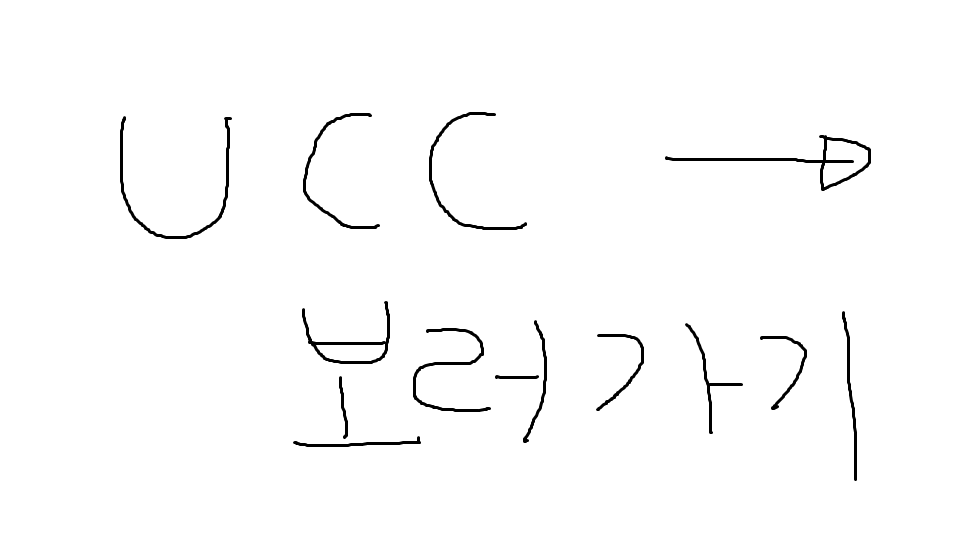 UCC →
보러가기